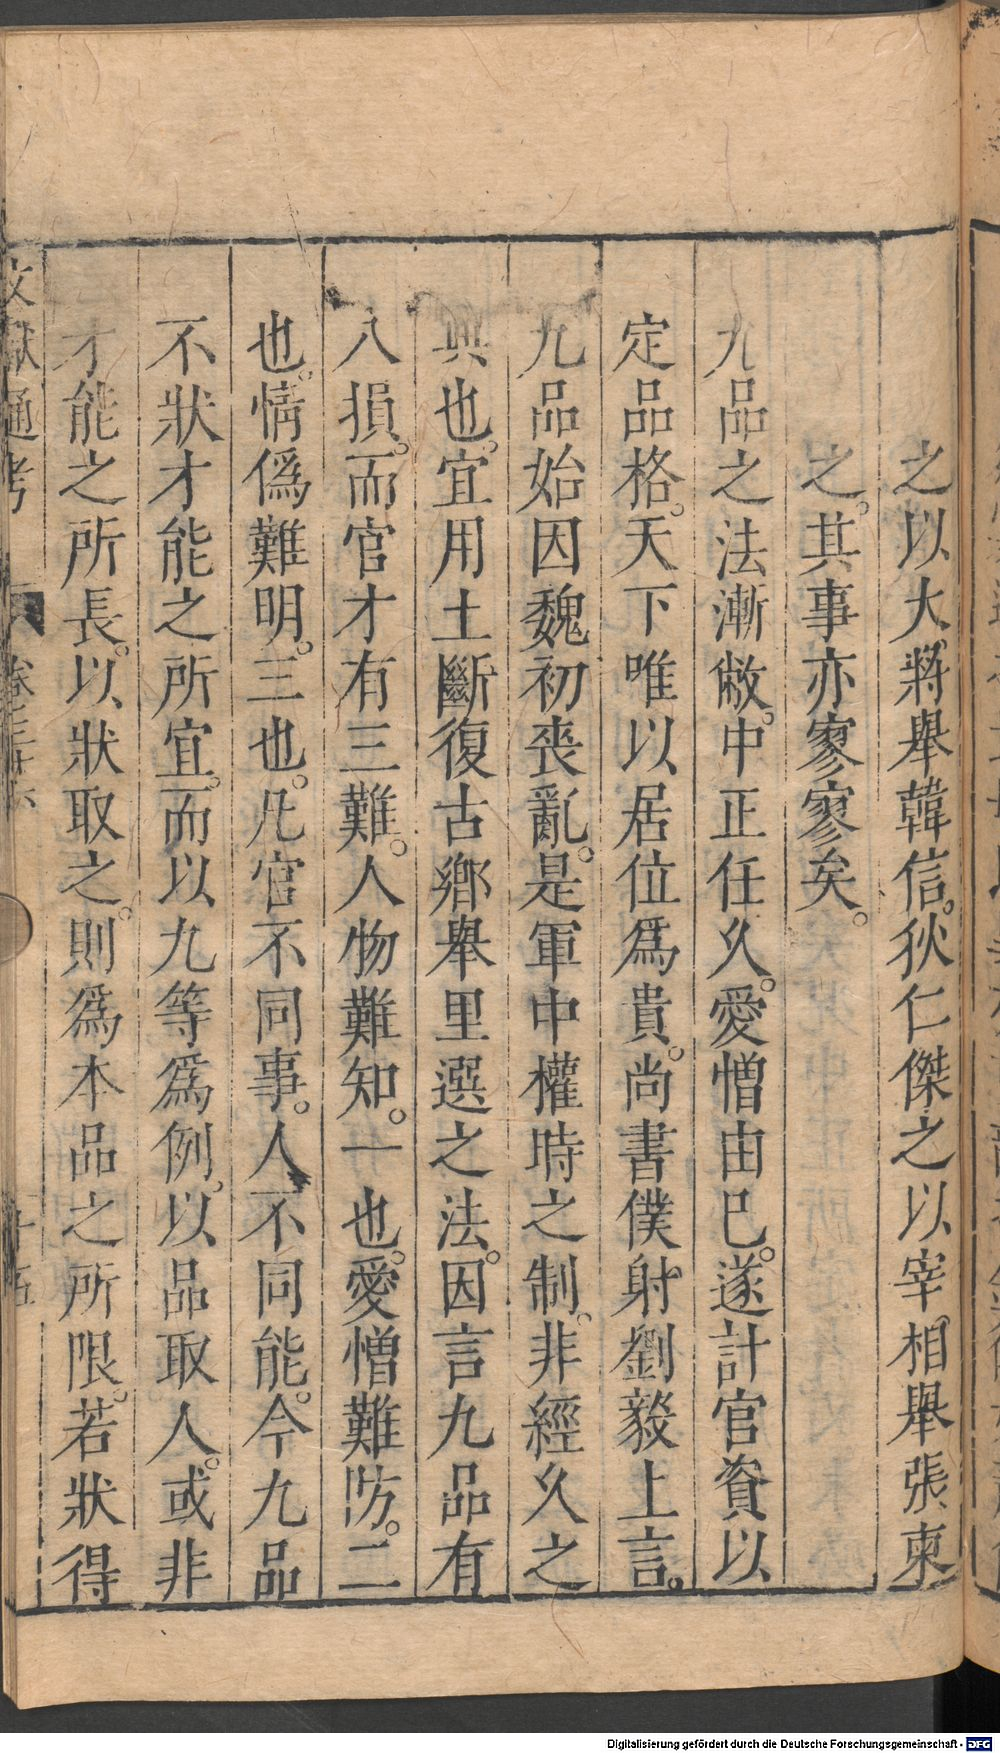 之以大將舉韓信。狄仁傑之以宰相舉張柬
之。其事亦寥寥矣。
九品之法漸敝。中正任久。愛憎由已。遂計官資以
定品格。天下唯以居位爲貴。尚書僕射劉毅上言。
九品始因魏初喪亂。是軍中權時之制。非經久之
典也。宜用土斷復古鄉舉里選之法。因言九品有
八損。而官才有三難。人物難知。一也。愛憎難防。二
也。情僞難明。三也。凡官不同事。人不同能。今九品
不狀才能之所宜。而以九等爲例。以品取人。或非
才能之所長。以狀取之。則爲本品之所限。若狀得
文獻通考 卷三十六 十五
Digitalisierung gefördert durch die Deutsche Forschungsgemeinschaft - DFG